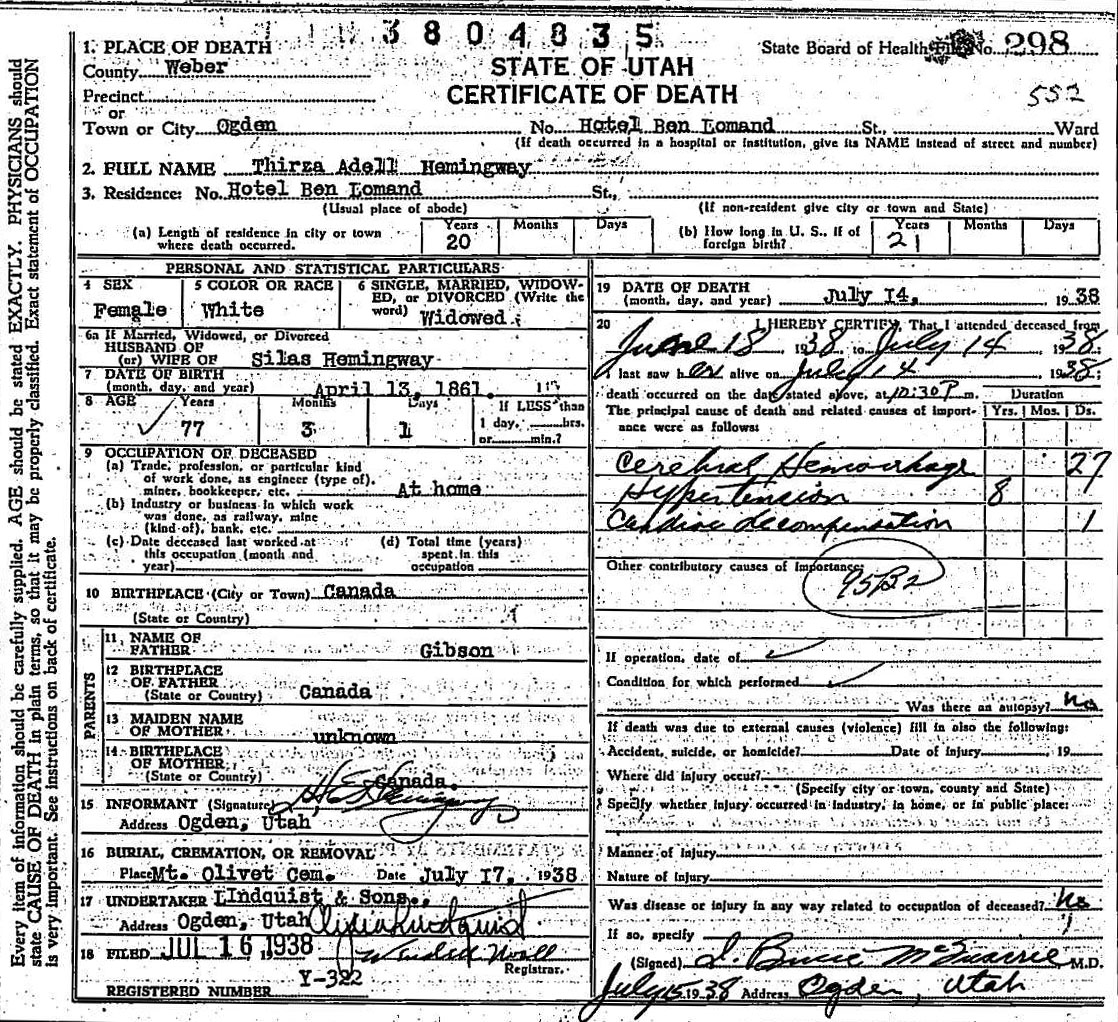 3804835
State Board of Health File No. 298
1. PLACE OF DEATH
County Weber
STATE OF UTAH
Precinct
CERTIFICATE OF DEATH
552
or
Town or City Ogden No. Hotel Ben Lomand St., Ward
(If death occurred in a hospital or institution, give its NAME instead of street and number)
2. FULL NAME Thirza Adell Hemingway
3. Residence: No. Hotel Ben Lomand St.,
(Usual place of abode) (If non-resident give city or town and State)
(a) Length of residence in city or town where death occurred. Years 20 Months Days
(b) How long in U. S., if of foreign birth? Years 21 Months Days
PERSONAL AND STATISTICAL PARTICULARS
4 SEX Female
5 COLOR OR RACE White
6 SINGLE, MARRIED, WIDOW-
ED, or DIVORCED (Write the
word) Widowed.
6a If Married, Widowed, or Divorced
HUSBAND OF
(or) WIFE OF Silas Hemingway
7 DATE OF BIRTH
(month, day, and year) April 13, 1861.
8 AGE Years 77 Months 3 Days 1
If LESS than
1 day, hrs.
or min.?
9 OCCUPATION OF DECEASED
(a) Trade, profession, or particular kind
of work done, as engineer (type of),
miner, bookkeeper, etc. At home
(b) Industry or business in which work
was done, as railway, mine
(kind of), bank, etc.
(c) Date deceased last worked at
this occupation (month and
year)
(d) Total time (years)
spent in this
occupation
10 BIRTHPLACE (City or Town) Canada
(State or Country)
PARENTS
11 NAME OF
FATHER Gibson
12 BIRTHPLACE
OF FATHER
(State or Country) Canada
13 MAIDEN NAME
OF MOTHER unknown
14 BIRTHPLACE
OF MOTHER
(State or Country) Canada.
15 INFORMANT (Signature) Hemingway
Address Ogden, Utah
16 BURIAL, CREMATION, OR REMOVAL
Place Mt. Olivet Cem. Date July 17, 1938
17 UNDERTAKER LIndquist & Sons.
Address Ogden, Utah Lindquist
18 FILED JUL 16 1938
Registrar.
Y-322
REGISTERED NUMBER
19 DATE OF DEATH
(month, day, and year) July 14, 1938
20 I HEREBY CERTIFY, That I attended deceased from
June 18 1938 to July 14 1938
I last saw her alive on July 14 1938;
death occurred on the date stated above, at 10:30 P m.
The principal cause of death and related causes of import-
ance were as follows:
Duration
Yrs. Mos. Ds.
Cerebral Hemorrhage 27
Hypertension 8
Cardiac decompensation 1
Other contributory causes of importance:
95B2
If operation, date of
Condition for which performed
Was there an autopsy? no
If death was due to external causes (violence) fill in also the following:
Accident, suicide, or homicide? Date of injury 19
Where did injury occur?
(Specify city or town, county and State)
Specify whether injury occurred in industry, in home, or in public place:
Manner of injury
Nature of injury
Was disease or injury in any way related to occupation of deceased? No
If so, specify
(Signed) I. Bruce McQuarrie M.D.
July 15 1938 Address Ogden, Utah
Every item of information should be carefully supplied. AGE should be stated EXACTLY. PHYSICIANS should
state CAUSE OF DEATH in plain terms, so that it may be properly classified. Exact statement of OCCUPATION
is very important. See instructions on back of certificate.